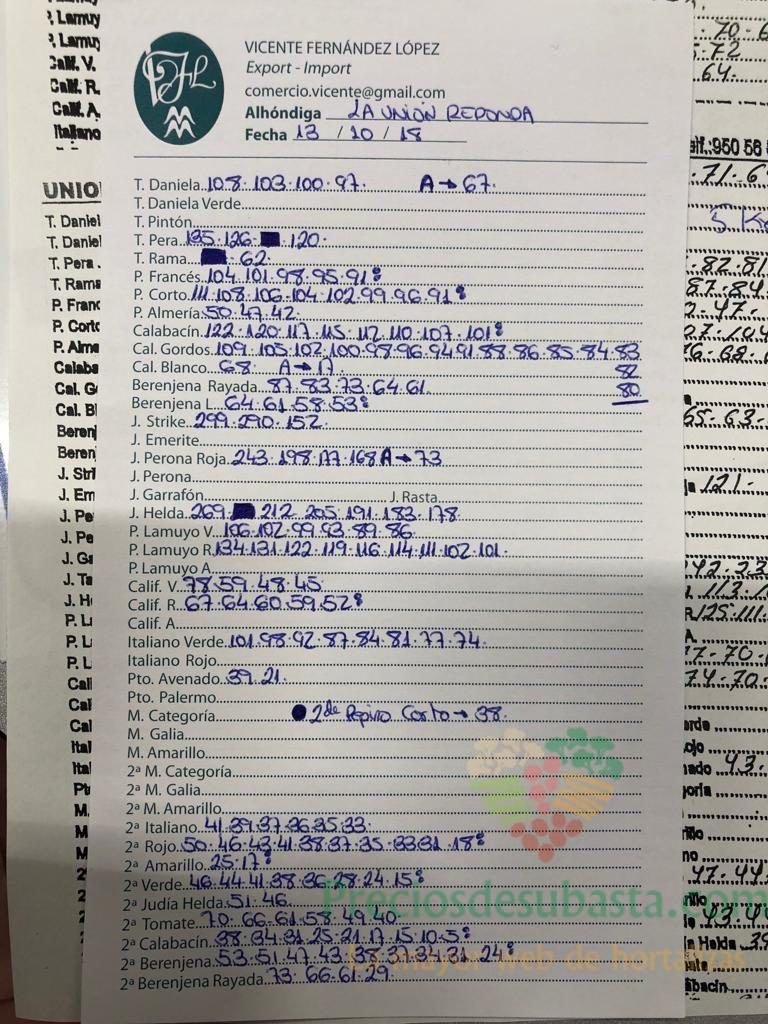 VICENTE FERNÁNDEZ LÓPEZ
Export - Import
comercio.vicente@gmail.com
Alhóndiga LA UNIÓN REDONDA
Fecha 13 / 10 / 18
T. Daniela 108·103·100·97· A→67·
T. Daniela Verde
T. Pintón
T. Pera 135·126· 120·
T. Rama · 62·
P. Francés 104·101·98·95·91
P. Corto 111·108·106·104·102·99·96·91
P. Almería 50·47·42·
Calabacín 122·120·117·115·112·110·107·101
Cal. Gordos 109·105·102·100·98·96·94·91·88·86·85·84·83
82
80
Cal. Blanco 68· A→17·
Berenjena Rayada 87·83·73·64·61·
Berenjena L. 64·61·58·53
J. Strike 299·290·152·
J. Emerite
J. Perona Roja 243·198·177·168 A→73
J. Perona
J. Garrafón J. Rasta
J. Helda 269· 212·205·191·183·178
P. Lamuyo V. 106·102·99·93·89·86·
P. Lamuyo R. 134·131·122·119·116·114·111·102·101·
P. Lamuyo A
Calif. V. 78·59·48·45·
Calif. R. 67·64·60·59·52
Calif. A
Italiano Verde 101·98·92·87·84·81·77·74·
Italiano Rojo
Pto. Avenado 39·21·
Pto. Palermo
M. Categoría 2ª de Pepino Corto → 38·
M. Galia
M. Amarillo
2ª M. Categoría
2ª M. Galia
2ª M. Amarillo
2ª Italiano 41·39·37·36·35·33·
2ª Rojo 50·46·43·41·38·37·35·33·31·18
2ª Amarillo 25·17
2ª Verde 46·44·41·38·36·28·24·15
2ª Judía Helda 51·46·
2ª Tomate 70·66·61·58·49·40·
2ª Calabacín 38·34·31·25·21·17·15·10·5
2ª Berenjena 53·51·47·43·38·37·34·31·24
2ª Berenjena Rayada 73·66·61·29·
Preciosdesubasta.com
La mayor web de hortalizas